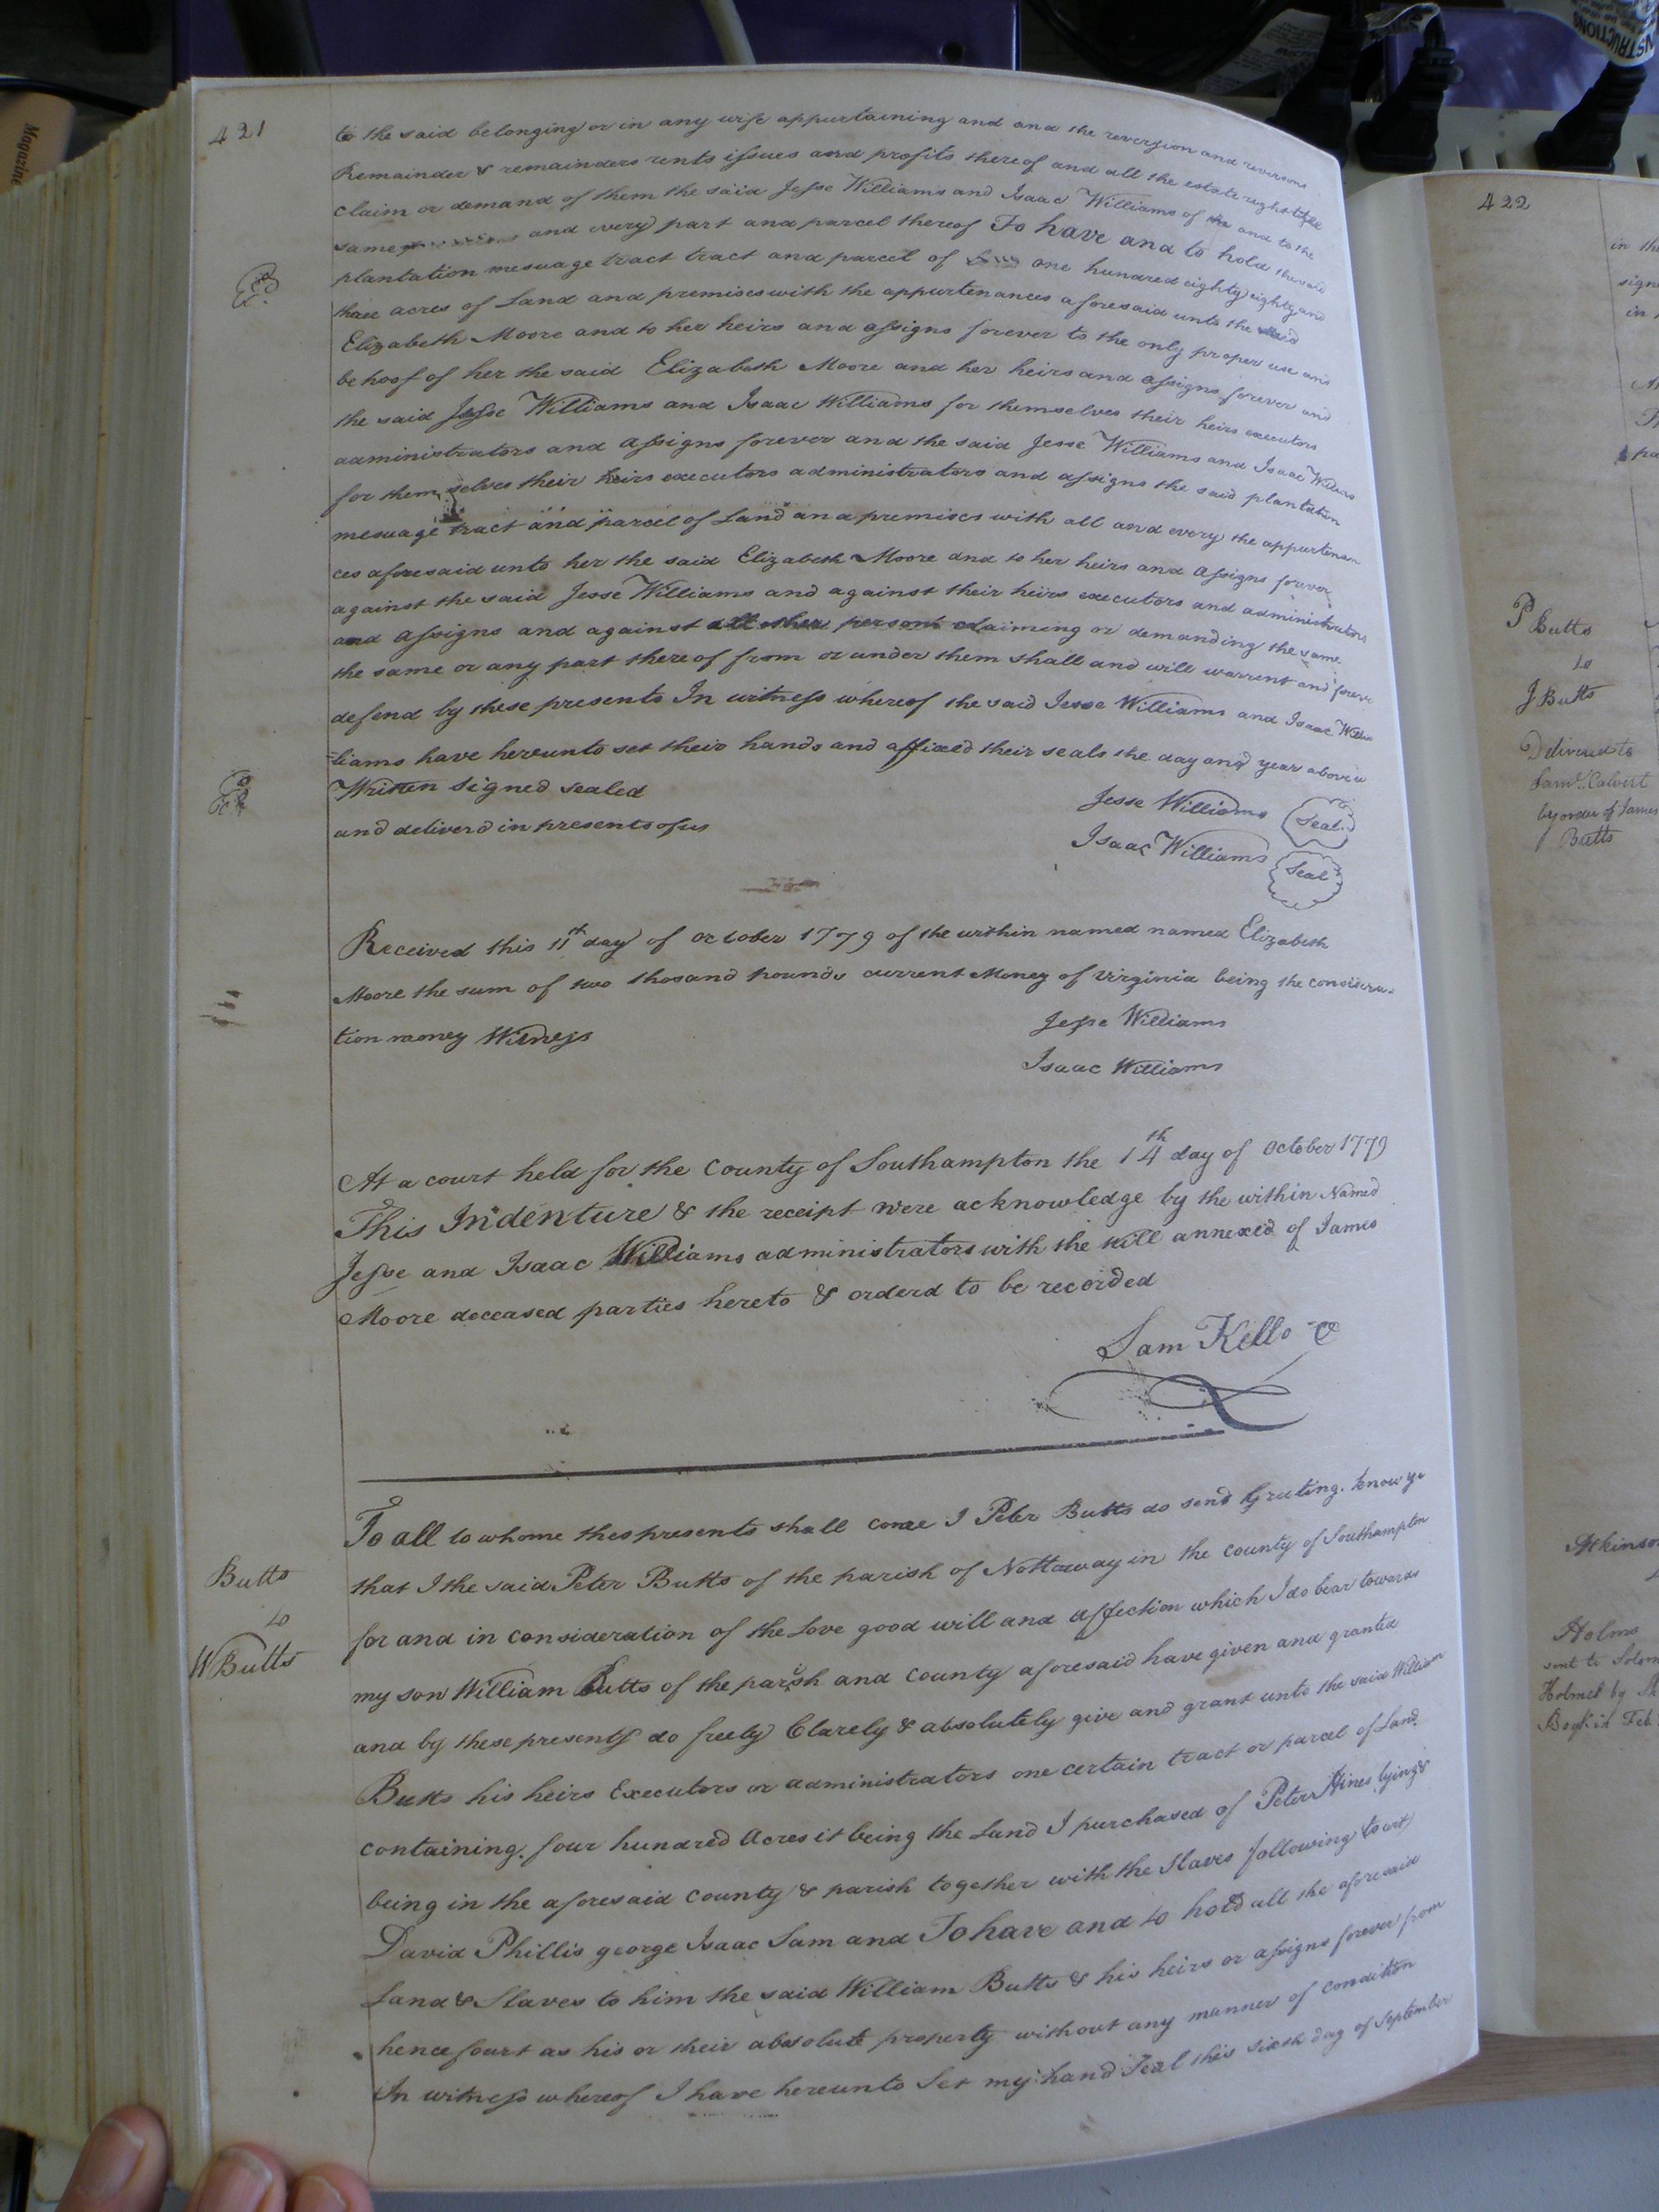 421
to the said belonging or in any wise appurtaining and and the reversion and reversions
Remainder & remainders rents issues and profits thereof and all the estate right title
claim or demand of them the said Jesse Williams and Isaac Williams of the and to the
same and every part and parcel thereof To have and to hold the said
plantation mesuage tract tract and parcel of one hundred eighty eighty and
three acres of Land and premises with the appurtenances aforesaid unto the said
Elizabeth Moore and to her heirs and assigns forever to the only proper use and
behoof of her the said Elizabeth Moore and her heirs and assigns forever and
the said Jesse Williams and Isaac Williams for themselves their heirs executors
administrators and assigns forever and the said Jesse Williams and Isaac Williams
for themselves their heirs executors administrators and assigns the said plantation
mesuage tract and parcel of Land and premises with all and every the appurtenan
ces aforesaid unto her the said Elizabeth Moore and to her heirs and assigns forever
against the said Jesse Williams and against their heirs executors and administrators
and assigns and against all other persons claiming or demanding the same
the same or any part thereof from or under them shall and will warrent and forever
defend by these presents In witness whereof the said Jesse Williams and Isaac Willia
=liams have hereunto set their hands and affixed their seals the day and year above w
Written signed sealed
and deliverd in presents of us
Jesse Williams Seal
Isaac Williams Seal
Received this 11th day of october 1779 of the within named named Elizabeth
Moore the sum of two thosand pounds current Money of virginia being the considera-
tion money Witness
Jesse Williams
Isaac Williams
At a court held for the County of Southampton the 14th day of October 1779
This Indenture & the receipt were acknowledge by the within Named
Jesse and Isaac Williams administrators with the will annexed of James
Moore deceased parties hereto & orderd to be recorded
Sam Kello
Butts
to
W Butts
To all to whome thes presents shall come I Peter Butts do send Greeting. know ye
that I the said Peter Butts of the parish of Nottoway in the county of Southampton
for and in consideration of the Love good will and affection which I do bear towards
my son William Butts of the parish and county aforesaid have given and granted
and by these presents do freely Clarely & absolutely give and grant unto the said William
Butts his heirs Executors or administrators one certain tract or parcel of Land
containing. four hundred Acres it being the Land I purchased of Peter Hines lying &
being in the aforesaid county & parish together with the Slaves following to wit
David Phillis george Isaac Sam and To have and to hold all the aforesaid
Land & Slaves to him the said William Butts & his heirs or assigns forever from
hence fourt as his or their absolute property without any manner of condition
In witness whereof I have hereunto Set my hand Seal this sixth day of September
422
in
sign
in
P Butts
to
J Butts
Delivered to
Saml. Calvert
by order of James
Butts
Atkinson
Holms
sent to
Holmes by
Boykin Feb
Magazine